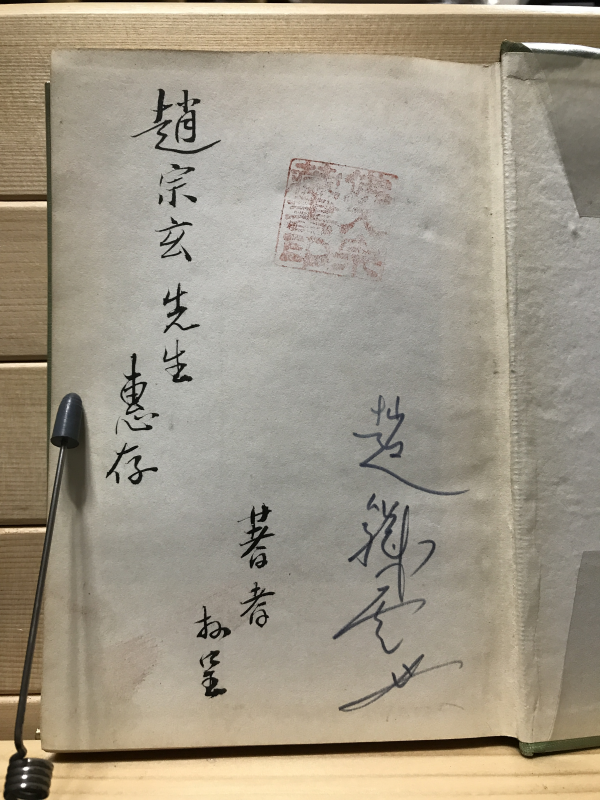 趙宗玄先生
惠存
著者
拜呈
藏書印
趙